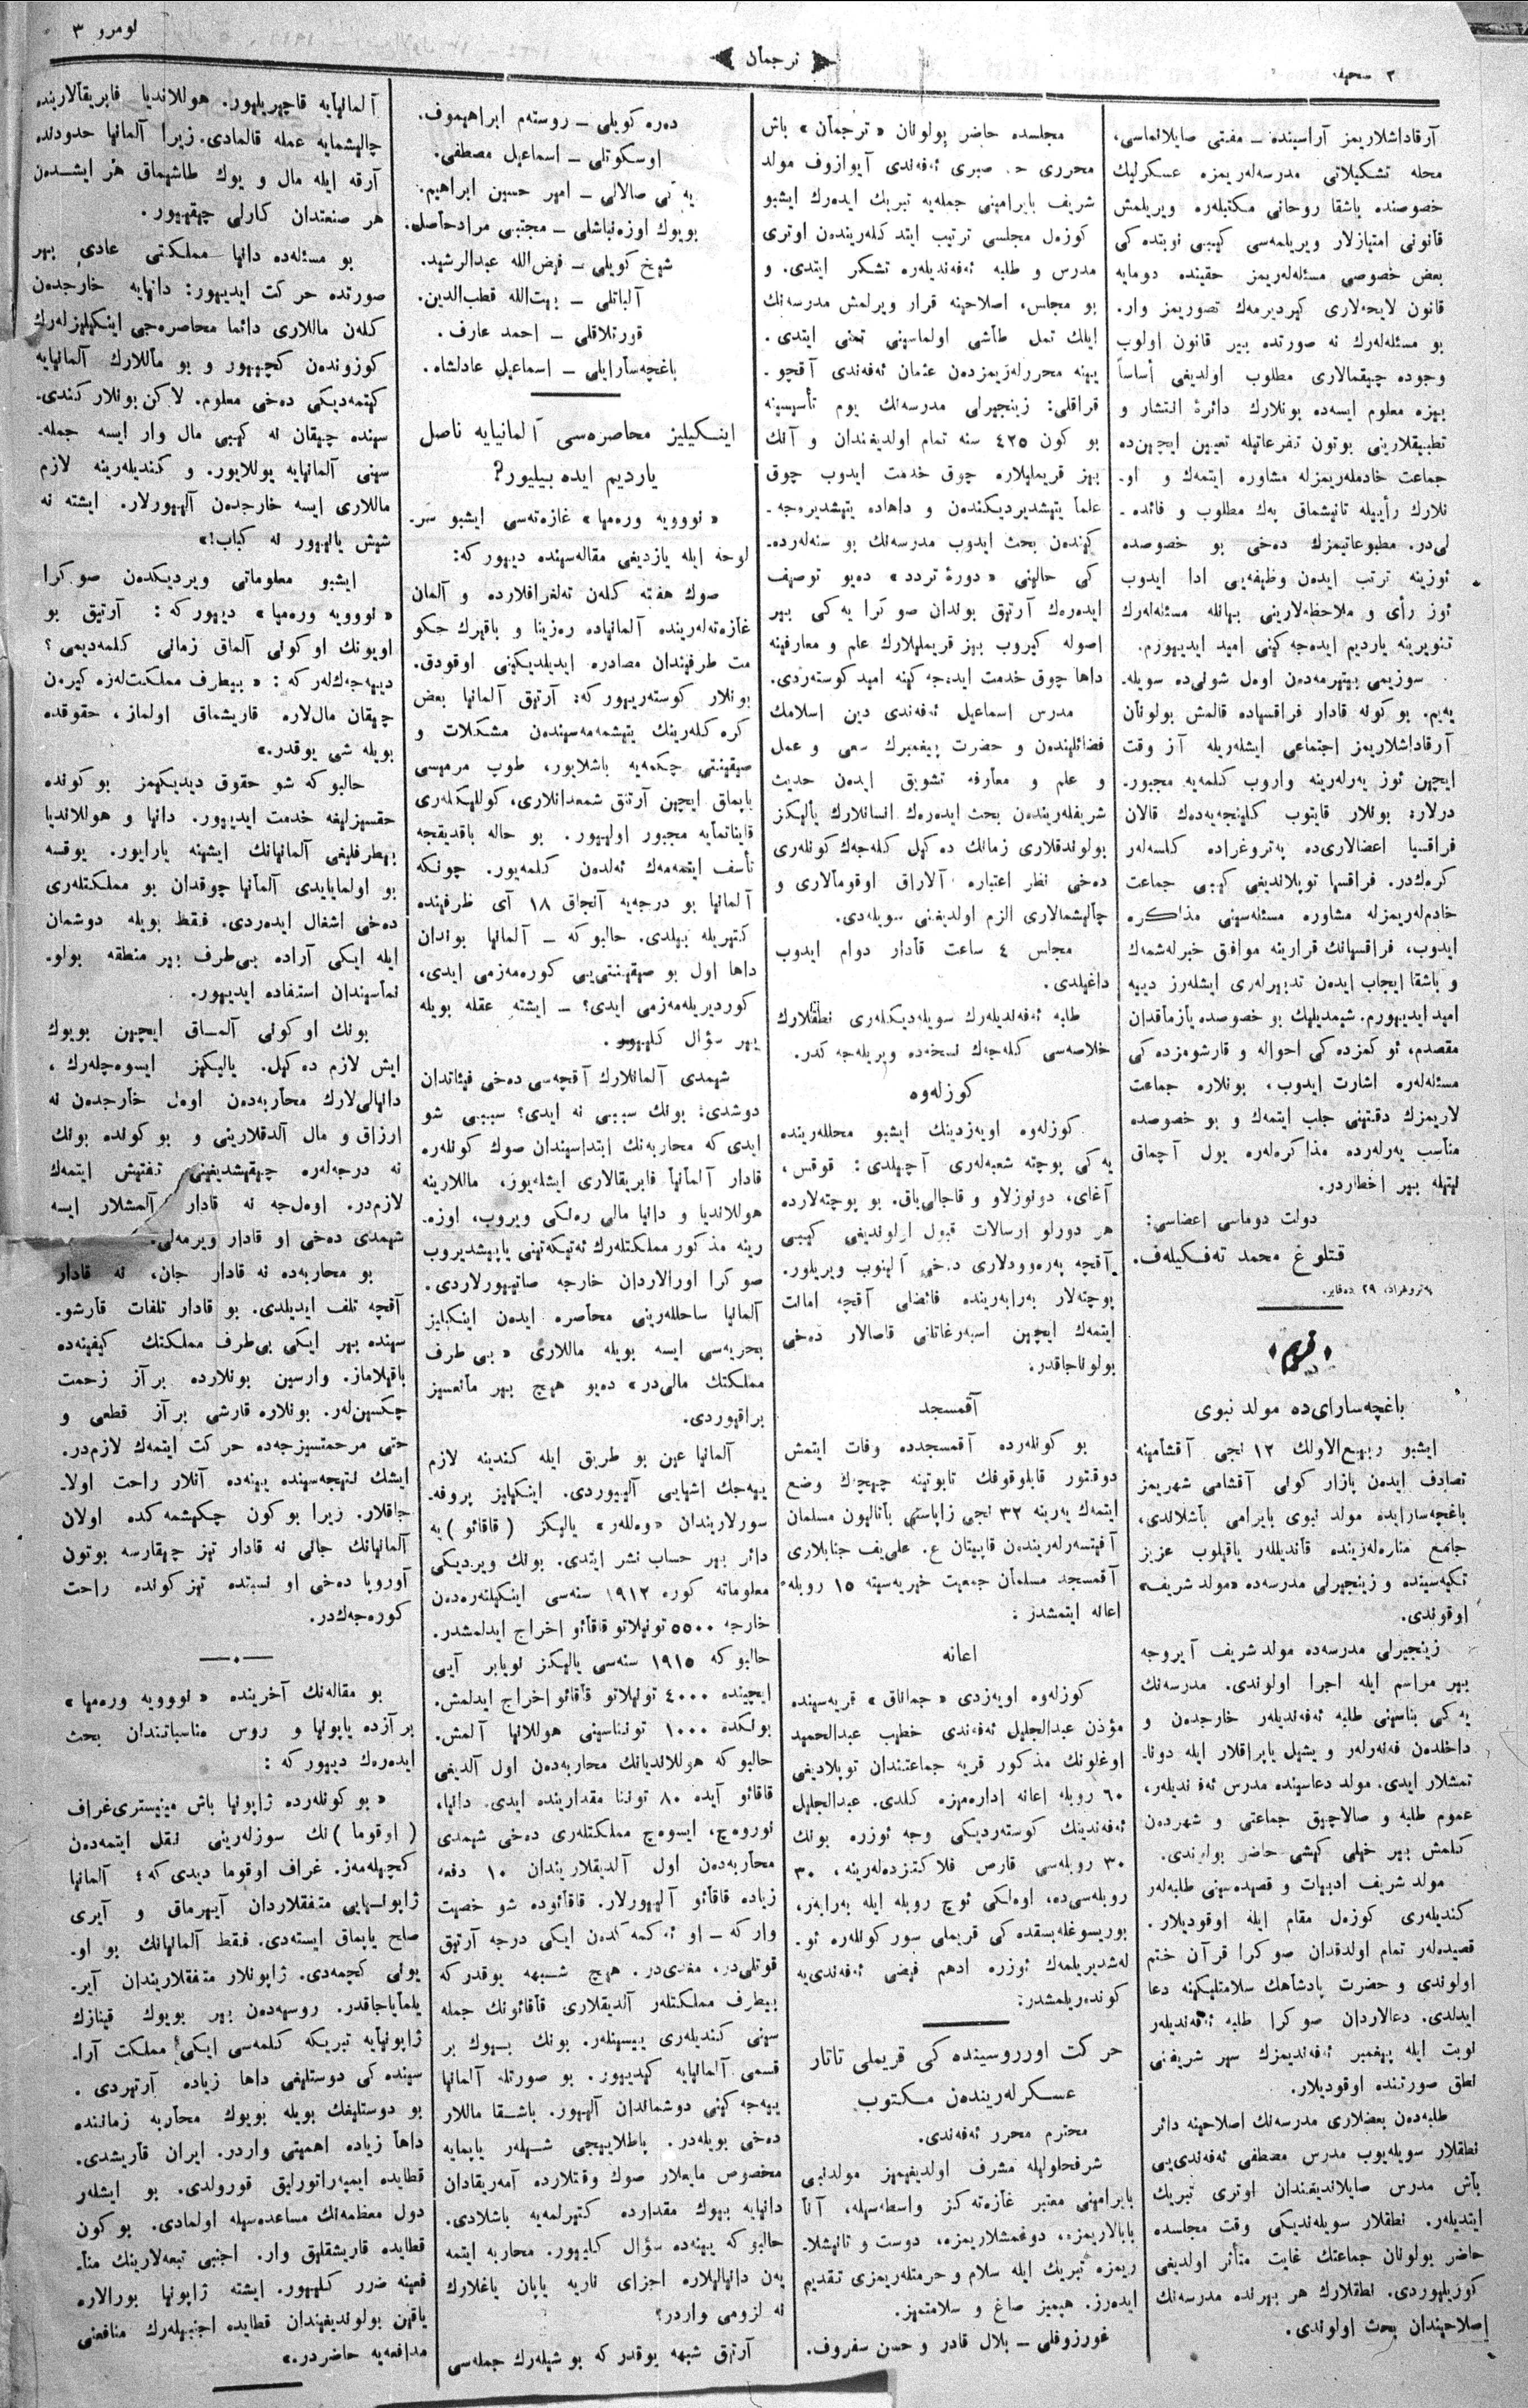 ۲ سحیفه
ترجمان
نومرو ۳
آرقاداشلاریمز آراسینده ـ مفتی صایلانماسی،
محله تشکیلاتی مدرسه‌لەریمزه عسکرلیك
خصوصنده باشقا روحانی مکتبلەره ویریلمش
قانونی امتیازلار ویریلمەسی کیبی نوبتده کی
بعض خصوصی مسئلەلەریمز حقینده دومایه
قانون لایحەلاری کیردیرمەك تصوریمز وار.
بو مسئلەلەرك نه صورتده بیر قانون اولوب
وجوده چیقمالاری مطلوب اولدیغی أساساً
بیزه معلوم ایسەده بونلارك دائرۀ انتشار و
تطبیقلارینی بوتون تفرعاتیله تعیین ایچین‌ده
جماعت خادملەریمزله مشاوره ایتمەك و او-
نلارك رأییله تانیشماق پەك مطلوب و فائده-
لی‌در. مطبوعاتیمزك دەخی بو خصوصده
ئوزینه ترتب ایدەن وظیفەیی ادا ایدوب
ئوز رأی و ملاحظەلارینی بیانله مسئلەلەرك
تنویرینه یاردیم ایدەجەکینی امید ایدییورم.
سوزیمی بیتیرمەدەن اوەل شونی‌ده سویله-
یەیم. بو کونه قادار فراقسیاده قالمش بولونان
آرقاداشلاریمز اجتماعی ایشلەریله آز وقت
ایچین ئوز یەرلەرینه واروب کلمەیه مجبور-
درلار. بونلار قایتوب کلینجەیەدەك قالان
فراقسیا اعضالاری‌ده پەتروغراده کلسەلەر
کرەك‌در. فراقسیا توپلاندیغی کیبی جماعت
خادم‌لەریمزله مشاوره مسئلەسینی مذاکره
ایدوب، فراقسیانك قرارینه موافق خبرلەشمەك
و باشقا ایجاب ایدەن تدبیرلەری ایشلەرز دییه
امید ایدیورم. شیمدیلیك بو خصوصده یازماقدان
مقصدم، ئوکمزده کی احواله و قارشومزده کی
مسئلەلەره اشارت ایدوب، بونلاره جماعت
لاریمزك دقتینی جلب ایتمەك و بو خصوصده
مناسب یەرلەرده مذاکرەلەره یول آچماق
نیتیله بیر اخطاردر.
دولت دوماسی اعضاسی:
قتلوغ محمد تەفکیلەف.
پەتروغراد، ۲۹ دەقابر.
قریم
باغچه‌سارای‌ده مولد نبوی
ایشبو ربیع‌الاولك ۱۲ نجی آقشامینه
تصادف ایدەن بازار کونی آقشامی شهریمز
باغچه‌سارایده مولد نبوی بایرامی باشلاندی،
جامع منارەلەزینده قاندیللەر یاقیلوب عزیز
تکیەسینده و زینجیرلی مدرسەده «مولد شریف»
اوقوندی.
زینجیرلی مدرسەده مولد شریف آیروجه
بیر مراسم ایله اجرا اولوندی. مدرسەنك
یەکی بناسینی طلبه ئەفەندیلەر خارجدەن و
داخلدەن فەنەرلەر و یشیل یاپراقلار ایله دونا-
تمشلار ایدی. مولد دعاسینده مدرس ئەفەندیلەر،
عموم طلبه و صالاچیق جماعتی و شهردەن
کلمش بیر خیلی کیشی حاضر بولوندی.
مولد شریف ادبیات و قصیدەسینی طلبەلەر
کندیلەری کوزەل مقام ایله اوقودیلار.
قصیدەلەر تمام اولدقدان صوکرا قرآن ختم
اولوندی و حضرت پادشاهك سلامتلیکینه دعا
ایدلدی. دعالاردان صوکرا طلبه ئەفەندیلەر
نوبت ایله پیغمبر ئەفەندیمزك سیر شریفنی
نطق صورتنده اوقودیلار.
طلبەدەن بعضلاری مدرسەنك اصلاحینه دائر
نطقلار سویلەیوب مدرس مصطفی ئەفەندی‌یی
باش مدرس صایلاندیغندان اوتری تبریك
ایتدیلەر. نطقلار سویلەندیکی وقت مجلسده
حاضر بولونان جماعتك غایت متأثر اولدیغی
کوزیلیوردی. نطقلارك هر بیرنده مدرسەنك
إصلاحیندان بحث اولوندی.
مجلسده حاضر بولونان «ترجمان» باش
محرری ح. صبری ئەفەندی آیوازوف مولد
شریف بایرامینی جملەیه تبریك ایدەرك ایشبو
کوزەل مجلسی ترتیب ایتدکلەریندەن اوتری
مدرس و طلبه ئەفەندیلەره تشکر ایتدی. و
بو مجلس، اصلاحینه قرار ویرلمش مدرسەنك
ایلك تمل طاشی اولماسینی تمنی ایتدی.
یینه محررلەریمزدەن عثمان ئەفەندی آقچو-
قراقلی: زینجیرلی مدرسەنك یوم تأسیسینه
بو کون ٤۲۵ سنه تمام اولدیغندان و آنك
بیز قریملیلاره چوق خدمت ایدوب چوق
علما یتیشدیردیکندەن و داهاده یتیشدیرەجە-
کیندەن بحث ایدوب مدرسەنك بو سنەلەرده-
کی حالینی «دورۀ تردد» دەیو توصیف
ایدەرەك آرتیق بوندان صوکرا یەکی بیر
اصوله کیروب بیز قریملیلارك علم و معارفینه
داها چوق خدمت ایدەجەکینه امید کوستەردی.
مدرس اسماعیل ئەفەندی دین اسلامك
فضائلیندەن و حضرت پیغمبرك سعی و عمل
و علم و معارفه تشویق ایدەن حدیث
شریفلەریندەن بحث ایدەرەك انسانلارك یالیکز
بولوندقلاری زمانك دەکیل کلەجەك کونلەری
دەخی نظر اعتباره آلاراق اوقومالاری و
چالیشمالاری الزم اولدیغنی سویلەدی.
مجلس ٤ ساعت قادار دوام ایدوب
داغیلدی.
طلبه ئەفەندیلەرك سویلەدیکلەری نطقلارك
خلاصەسی کلەجەك نسخەده ویریلەجەکدر.
کوزلەوه
کوزلەوه اویەزدینك ایشبو محللەرینده
یەکی پوچته شعبەلەری آچیلدی: قوقس،
آغای، دونوزلاو و قاجالی‌باق. بو پوچتەلارده
هر دورلو ارسالات قبول اولوندیغی کیبی
آقچه پەرەوودلاری دخی آلینوب ویریلور.
پوچتەلار بەرابەرینده فائضلی آقچه امانت
ایتمەك ایچین اسبەرغاتلنی قاصالار دەخی
بولوناجاقدر.
آقمسجد
بو کونلەرده آقمسجدده وفات ایتمش
دوقتور قابلوقوفك تابوتینه چیچك وضع
ایتمەك یەرینه ۳۲ نجی زاپاسنی باتالیون مسلمان
آفیتسەرلەریندەن قاپیتان ع. علی‌یف جنابلاری
آقمسجد مسلمان جمعیت خیریەسینه ۱۵ روبله
اعانه ایتمشدر.
اعانه
کوزلەوه اویەزدی «جماناق» قریەسینده
مؤذن عبدالجلیل ئەفەندی خطیب عبدالحمید
اوغلونك مذکور قریه جماعتندان توپلادیغی
٦۰ روبله اعانه ادارەمیزه کلدی. عبدالجلیل
ئەفەندینك کوستەردیکی وجه ئوزره بونك
۳۰ روبلەسی قارص فلاکتزدەلەرینه، ۳۰
روبلەسی‌ده، اوەلکی ئوچ روبله ایله بەرابەر،
بوریسوغلەبسقده کی قریملی سورکونلەره ئو-
لەشدیریلمەك ئوزره ادهم فیضی ئەفەندی‌یه
کوندەریلمشدر.
حرکت اوردوسینده کی قریملی تاتار
عسکرلەریندەن مکتوب
محترم محرر ئەفەندی.
شرفحلولیله مشرف اولدیغیمیز مولدنبی
بایرامینی معتبر غازەتەکز واسطەسیله، آنا
بابالاریمزه، دوغمشلاریمزه، دوست و تانیشلا-
ریمزه تبریك ایله سلام و حرمتلەریمزی تقدیم
ایدەرز. هپمیز صاغ و سلامتمیز.
غورزوفلی ـ بلال قادر و حسن سفروف.
دەرەکویلی ـ روستەم ابراهیموف.
اوسکوتلی ـ اسماعیل مصطفی.
یەنی صالالی ـ امیر حسین ابراهیم.
بویوك اوزەنباشلی ـ مجتبی مرادحاصل.
شیخ کویلی ـ فیض‌الله عبدالرشید.
آلباتلی ـ بیت‌الله قطب‌الدین.
قورتلاقلی ـ احمد عارف.
باغچه‌سارایلی ـ اسماعیل عادلشاه.
اینکیلیز محاصرەسی آلمانیایه ناصل
یاردیم ایدەبیلیور؟
«نوویه ورەمیا» غازەتەسی ایشبو سر-
لوحه ایله یازدیغی مقالەسینده دییور که:
صوك هفته کلەن تەلغرافلارده و آلمان
غازەتەلەرینده آلمانیاده رەزینا و باقیرك حکو
مت طرفیندان مصادره ایدیلدیکینی اوقودق.
بونلار کوستەرییور که: آرتیق آلمانیا بعض
کرەکلەرینك یتیشمەمەسیندەن مشکلات و
صیقینتی چکمەیه باشلایور، طوپ مرمیسی
یاپماق ایچین آرتیق شمعدانلاری، کوللیکلەری
قایناتمایه مجبور اولییور. بو حاله باقدیقجه
تأسف ایتمەمەك ئەلدەن کلمەیور. چونکه
آلمانیا بو درجەیه آنجاق ۱۸ آی ظرفینده
کتیریله بیلدی. حالبوکه ـ آلمانیا بوندان
داها اول بو صیقینتی‌یی کورەمەزمی ایدی،
کوردیریلەمەزمی ایدی؟ ـ ایشته عقله بویله
بیر سؤال کلییور.
شیمدی آلمانلارك آقچەسی دەخی فیئاتدان
دوشدی: بونك سببی نه ایدی؟ سببی شو
ایدی که محاربەنك ابتداسیندان صوك کونلەره
قادار آلمانیا فابریقالاری ایشلەیور، ماللارینه
هوللاندیا و دانیا مالی رەنکی ویروب، اوزە-
رینه مذکور مملکتلەرك ئەتیکەتینی یاپیشدیروب
صوکرا اورالاردان خارجه صاتییورلاردی.
آلمانیا ساحللەرینی محاصره ایدەن اینکیلیز
بحریەسی ایسه بویله ماللاری «بی‌طرف
مملکتك مالی‌در» دەیو هیچ بیر مانعسیز
براقیوردی.
آلمانیا عین بو طریق ایله کندینه لازم
ییەجك اشیایی آلییوردی. اینکیلیز پروفە-
سورلاریندان «وەللەر» یالیکز (قاقائو)یه
دائر بیر حساب نشر ایتدی. بونك ویردیکی
معلوماته کوره ۱۹۱۲ سنەسی اینکیلتەرەدەن
خارجه ۵۵۰۰ تونیلاتو قاقائو اخراج ایدلمشدر.
حالبوکه ۱۹۱۵ سنەسی یالیکز نویابر آیی
ایچینده ٤۰۰۰ تونیلاتو قاقائو اخراج ایدلمش.
بونکده ۱۰۰۰ تونناسینی هوللانیا آلمش.
حالبوکه هوللاندیانك محاربەدەن اول آلدیغی
قاقائو آیده ۸۰ توننا مقدارینده ایدی. دانیا،
نوروەچ، ایسوەچ مملکتلەری دەخی شیمدی
محاربەدەن اول آلدیقلاریندان ۱۰ دفعه
زیاده قاقائو آلییورلار. قاقائوده شو خصیت
وار که ـ او ئەکمەکدەن ایکی درجه آرتیق
قوتلی‌در، مغدی‌در. هیچ شـبهه یوقدر که
بیطرف مملکتلەر آلدیقلاری قاقائونك جمله
سینی کندیلەری ییمییەلەر. بونك بـیوك بر
قسمی آلمانیایه کیدییور. بو صورتله آلمانیا
ییەجەکینی دوشماندان آلییور. باشـقا ماللار
دەخی بویلەدر. پاطلاییجی شـیلەر یاپمایه
مخصوص مایعلار صوك وقتلارده آمەریقادان
دانیایه بیوك مقدارده کتیرلمەیه باشلادی.
حالبوکه یینەده سؤال کلییور. محاربه ایتمه
یەن دانیالیلاره اجزای ناریه یاپان یاغلارك
نه لزومی واردر؟
آرتیق شبهه یوقدر که بو شیلەرك جملەسی
آلمانیایه قاچیریلییور. هوللاندیا فابریقالارینده
چالیشمایه عمله قالمادی. زیرا آلمانیا حدودنده
آرقه ایله مال و یوك طاشیماق هر ایشـدەن
هر صنعتدان کارلی چیقییور.
بو مسئلەده دانیا مملکتی عادی بیر
صورتده حرکت ایدییور: دانیایه خارجدەن
کلەن ماللاری دائما محاصرەجی اینکیلیزلەرك
کوزوندەن کچییور و بو ماللارك آلمانیایه
کیتمەدیکی دەخی معلوم. لاکن بونلار کندی-
سینده چیقان نه کیبی مال وار ایسه جمله-
سینی آلمانیایه یوللایور. و کندیلەرینه لازم
ماللاری ایسه خارجدەن آلییورلار. ایشته نه
شیش یانییور نه کباب!»
ایشبو معلوماتی ویردیکدەن صوکرا
«نوویه ورەمیا» دییور که: آرتیق بو
اویونك اوکونی آلماق زمانی کلمەدیمی؟
دییەجەكلەر که: «بیطرف مملکت‌لەره کیرەن
چیقان مال‌لاره قاریشماق اولماز، حقوقده
بویله شی یوقدر.»
حالبوکه شو حقوق دیدیکیمز بو کونده
حقسیزلیغه خدمت ایدییور. دانیا و هوللاندیا
بیطرفلیغی آلمانیانك ایشینه یارایور. یوقسه
بو اولمایایدی آلمانیا چوقدان بو مملکتلەری
دەخی اشغال ایدەردی. فـقط بویله دوشمان
ایله ایکی آراده بی‌طرف بیر منطقه بولو-
نماسیندان استفاده ایدییور.
بونك اوکونی آلمـاق ایچین بویوك
ایش لازم دەکیل. یالیکز ایسوەچلەرك،
دانیالی‌لارك محاربەدەن اوەل خارجدەن نه
ارزاق و مال آلدقلارینی و بو کونده بونك
نه درجەلەره چیقیشدیغینی تـفتیش ایتمەك
لازم‌در. اوەل‌جه نه قادار آلمشلار ایسه
شیمدی دەخی او قادار ویرمەلی.
بو محاربەده نه قادار جان، نه قادار
آقچه تلف ایدیلدی. بو قادار تلفات قارشو-
سینده بیر ایکی بی‌طرف مملکتك کیفینەده
باقیلاماز. وارسین بونلارده برآز زحمت
چکسین‌لەر. بونلاره قارشی برآز قطعی و
حتی مرحمتسیزجەده حرکت ایتمەك لازم‌در.
ایشك نتیجەسینده یینەده آنلار راحت اولا-
جاقلار. زیرا بو کون چکیشمەکده اولان
آلمانیانك جانی نه قادار تیز چیقارسه بوتون
آوروپا دەخی او نسبتده تیز کونده راحت
کورەجەك‌در.
بو مقالەنك آخرینده «نوویه ورەمیا»
برآزده یاپونیا و روس مناسباتندان بحث
ایدەرەك دییور که:
«بو کونلەرده ژاپونیا باش مینیستری‌غراف
(اوقوما)نك سوزلەرینی نـقل ایتمەدەن
کچیلەمەز. غراف اوقوما دیدی که: آلمانیا
ژاپونـیایی متفقلاردان آییرماق و آیری
صلح یاپماق ایستەدی. فـقط آلمانیانك بو او-
یونی کچمەدی. ژاپونلار متفقلاریندان آیر-
یلمایاجاقدر. روسیەدەن بیر بویوك قینازك
ژاپونیایه تبریکه کلمەسی ایکی مملکت آرا-
سینده کی دوستلیغی داها زیاده آرتیردی.
بو دوستلیغك بویله بویوك محاربه زمانینده
داها زیاده اهمیتی واردر. ایران قاریشدی.
قطایده ایمپەراتورلیق قورولدی. بو ایشلەر
دول معظمەنك مساعدەسیله اولمادی. بو کون
قطایده قاریشقلیق وار. اجنبی تبعەلارینك منا-
فعینه ضرر کلییور. ایشته ژاپونیا بورالاره
یاقین بولوندیغیندان قطایده اجنبیلەرك منافعنی
مدافعەیه حاضردر.»